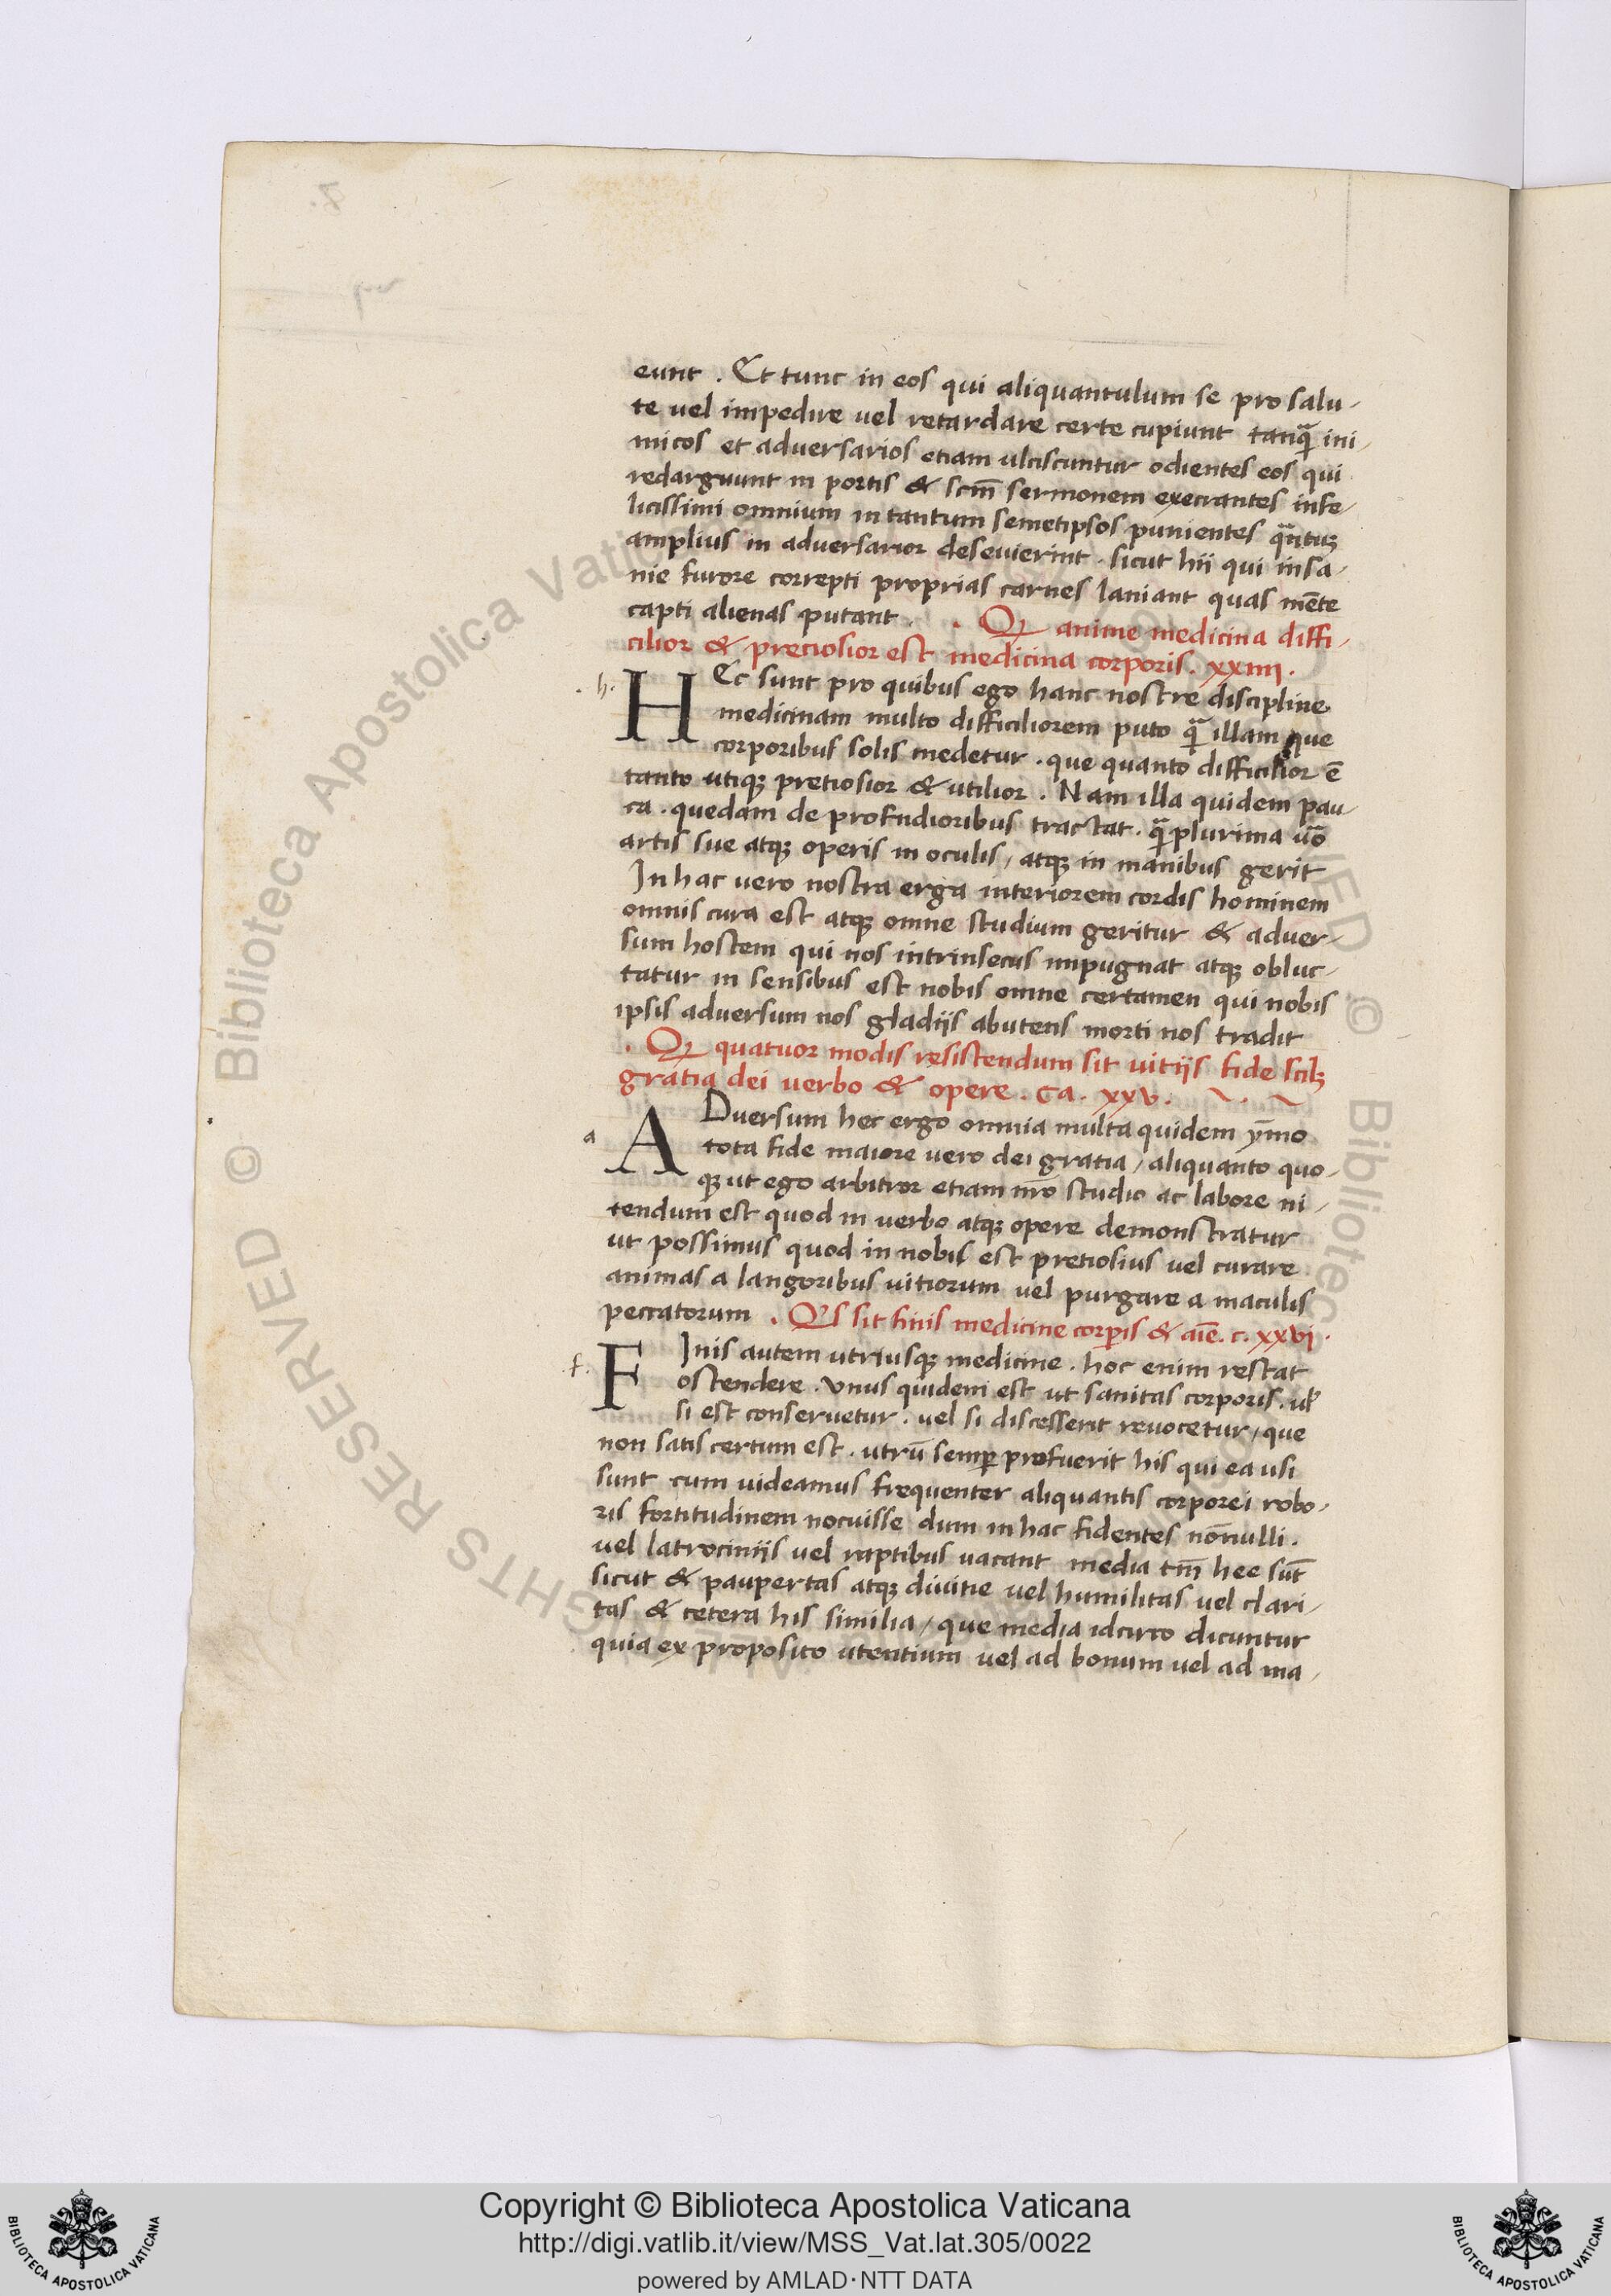 eunt . Et tunc in eos qui aliquantulum se pro salu-
te uel impedire uel retardare certe cupiunt tanq̃ ini-
micos et adversarios etiam ulciscuntur odientes eos qui
redarguunt in portis & scm̄ sermonem execrantes infe-
licissimi omnium in tantum semetipsos punientes q̃ntuꝫ
amplius in adversarior desevierint . sicut hii qui insa-
nie furore correpti proprias carnes laniant quas mēte
capti alienas putant . . Qꝫ anime medicina diffi-
cilior & pretiosior est medicina corporis . xxiiii .
. h .
HEc sunt pro quibus ego hanc nostre discipline
medicinam multo difficiliorem puto q̃ illam que
corporibus solis medetur . que quanto difficilior ē
tanto utiqꝫ pretiosior & utilior . Nam illa quidem pau-
ca . quedam de profundioribus tractat . q̃plurima ūo
artis sue atqꝫ operis in oculis / atqꝫ in manibus gerit
In hac uero nostra erga interiorem cordis hominem
omnis cura est atqꝫ omne studium geritur & adver-
sum hostem qui nos intrinsecus impugnat atqꝫ obluc-
tatur in sensibus est nobis omne certamen qui nobis
ipsis adversum nos gladiis abutens morti nos tradit
. Qꝫ quatuor modis resistendum sit uitiis fide scilꝫ
gratia dei uerbo & opere . Ca . xxv .
a
ADversum hec ergo omnia multa quidem ym̄o
tota fide maiore uero dei gratia / aliquanto quo-
qꝫ ut ego arbitror etiam nr̄o studio ac labore ni-
tendum est quod in uerbo atqꝫ opere demonstratur
ut possimus quod in nobis est pretiosius uel curare
animas a langoribus uitiorum uel purgare a maculis
peccatorum . Qͥs sit finis medicine corꝑis & aīe . c . xxvi .
. f .
FInis autem utriusqꝫ medicine . hoc enim restat
ostendere . Unus quidem est ut sanitas corporis . uꝉ
si est conservetur . vel si discesserit revocetur / que
non satis certum est . utrū semꝑ profuerit his qui ea usi
sunt cum uideamus frequenter aliquantis corporei robo-
ris fortitudinem nocuisse dum in hac fidentes nōnulli .
uel latrociniis vel raptibus uacant media tm̄ hec sūt
sicut & paupertas atqꝫ divitie uel humilitas uel clari-
tas & cetera his similia / que media idcirco dicuntur
quia ex proposito utentium uel ad bonum uel ad ma-
Copyright © Biblioteca Apostolica Vaticana
http://digi.vatlib.it/view/MSS_Vat.lat.305/0022
powered by AMLAD·NTT DATA